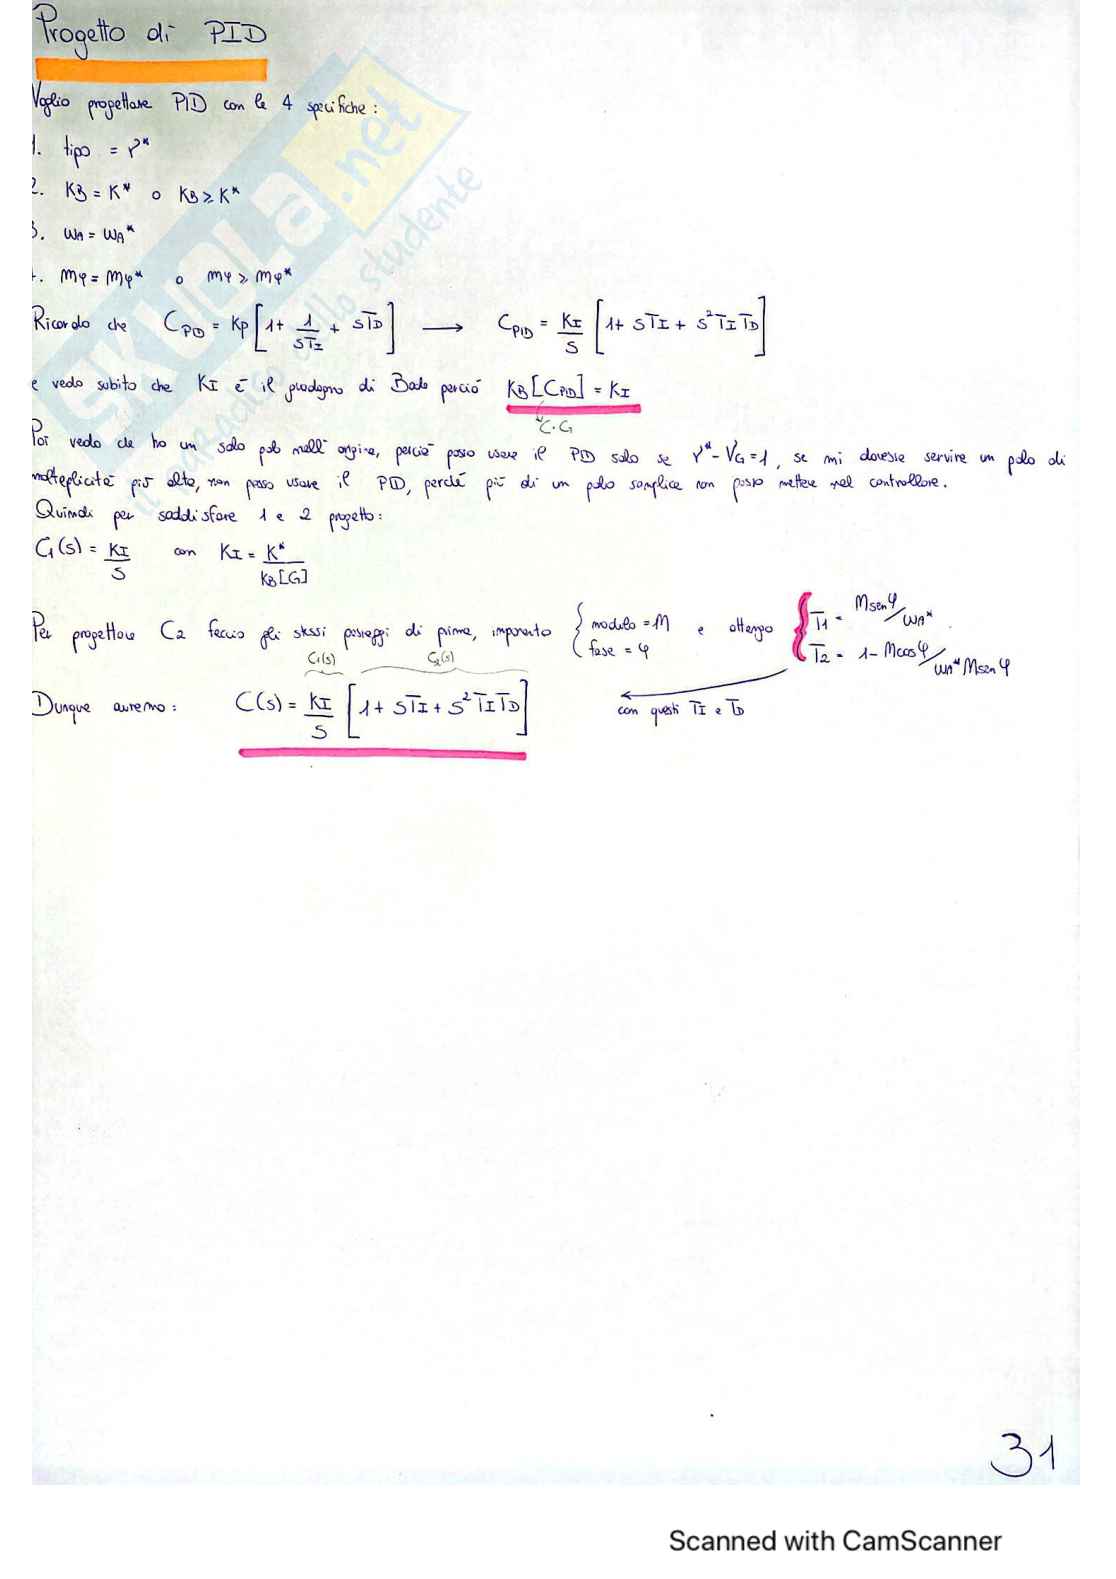 Progetto di PID
Voglio progettare PID con le 4 specifiche:
1. tipo = r*
2. KB = K* o KB ≥ K*
3. ωA = ωA*
4. mφ = mφ* o mφ ≥ mφ*
Ricordo che CPID = Kp [1 + 1/(sTI) + sTD] ⟶ CPID = KI/s [1 + sTI + s² TI TD]
e vedo subito che KI è il guadagno di Bode perciò KB[CPID] = KI
C·G
Poi vedo che ho un solo polo nell'origine, perciò posso usare il PID solo se r* - VG = 1, se mi dovesse servire un polo di
molteplicità più alta, non posso usare il PID, perché più di un polo semplice non posso mettere nel controllore.
Quindi per soddisfare 1 e 2 progetto:
C1(s) = KI/s con KI = K*/KB[G]
Per progettare C2 faccio gli stessi passaggi di prima, imponendo { modulo = M fase = φ e ottengo { T1 = M sen φ/ωA* T2 = 1 - M cos φ/ωA* M sen φ
C1(s) C2(s)
Dunque avremo: C(s) = KI/s [1 + sTI + s² TI TD] con questi TI e TD
31
SKUOLA.net
Scanned with CamScanner